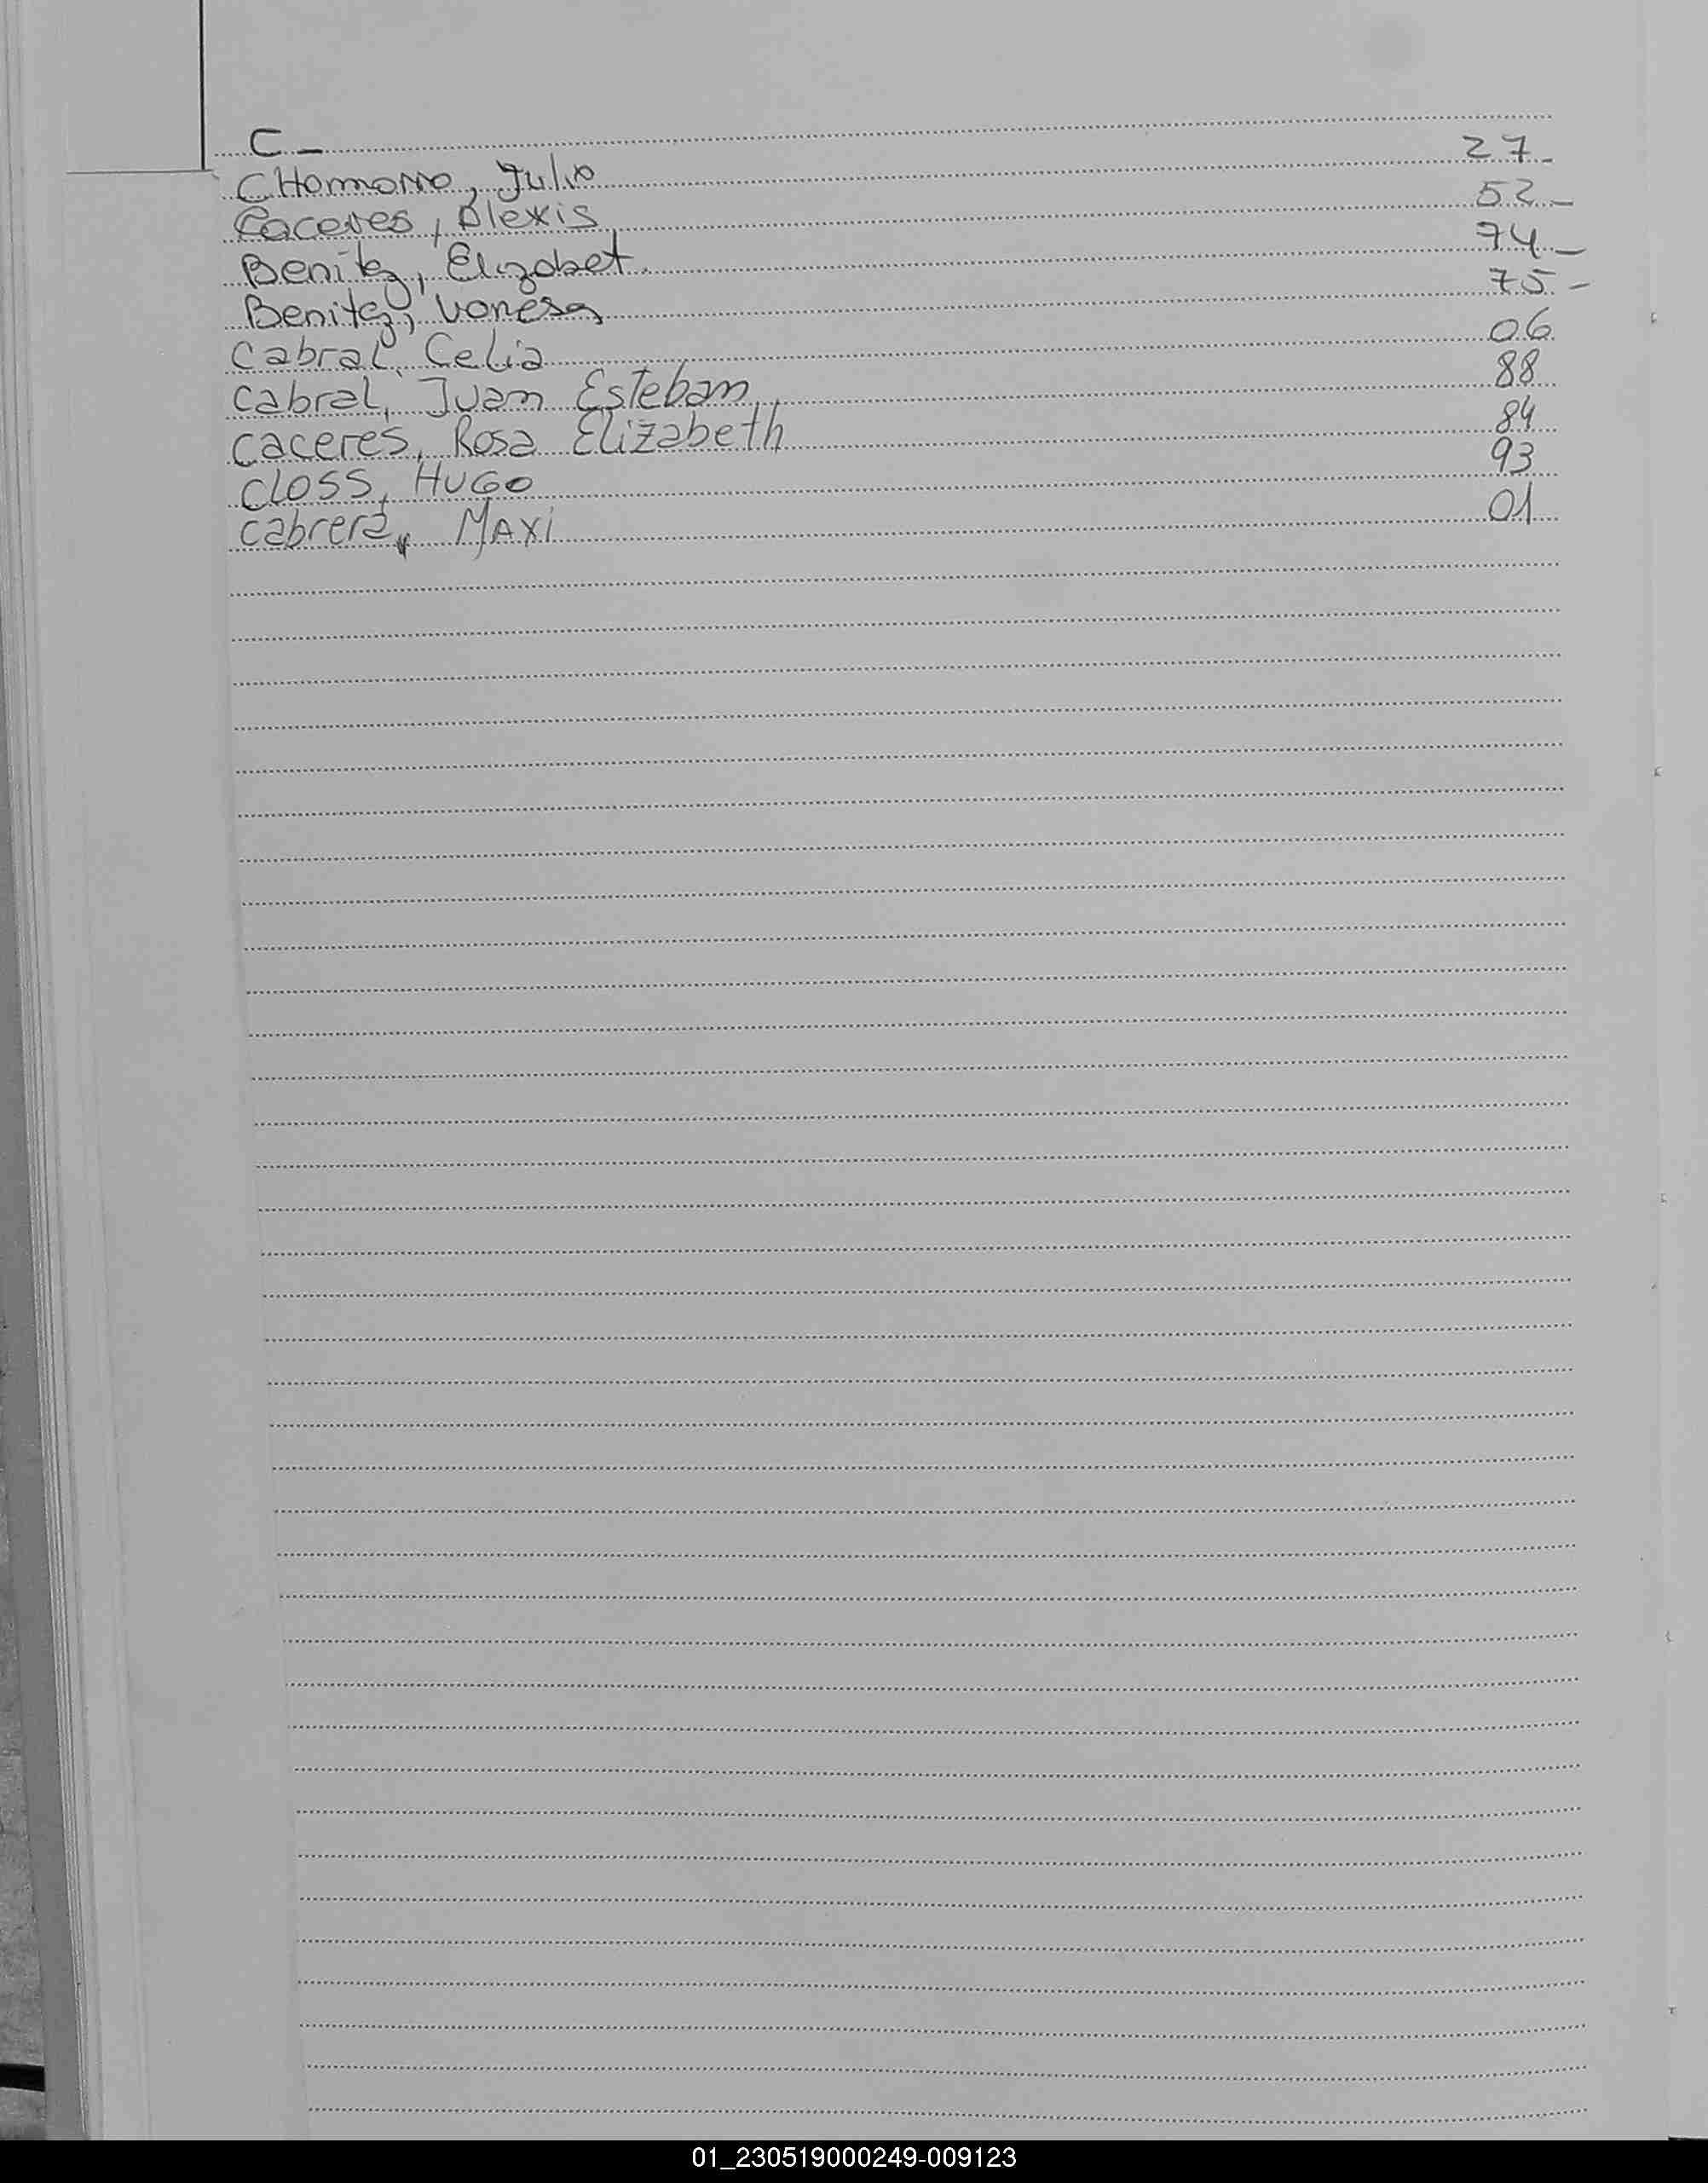 C_
CHamorro, Julio 27_
Caceres, Alexis 52_
Benitez, Elizabet. 74_
Benitez, Vanesa 75-
Cabral, Celia 06
Cabral, Juan Esteban 88
Caceres, Rosa Elizabeth 84
Closs, HUGO 93
Cabrera, MAXi 01
01_230519000249-009123